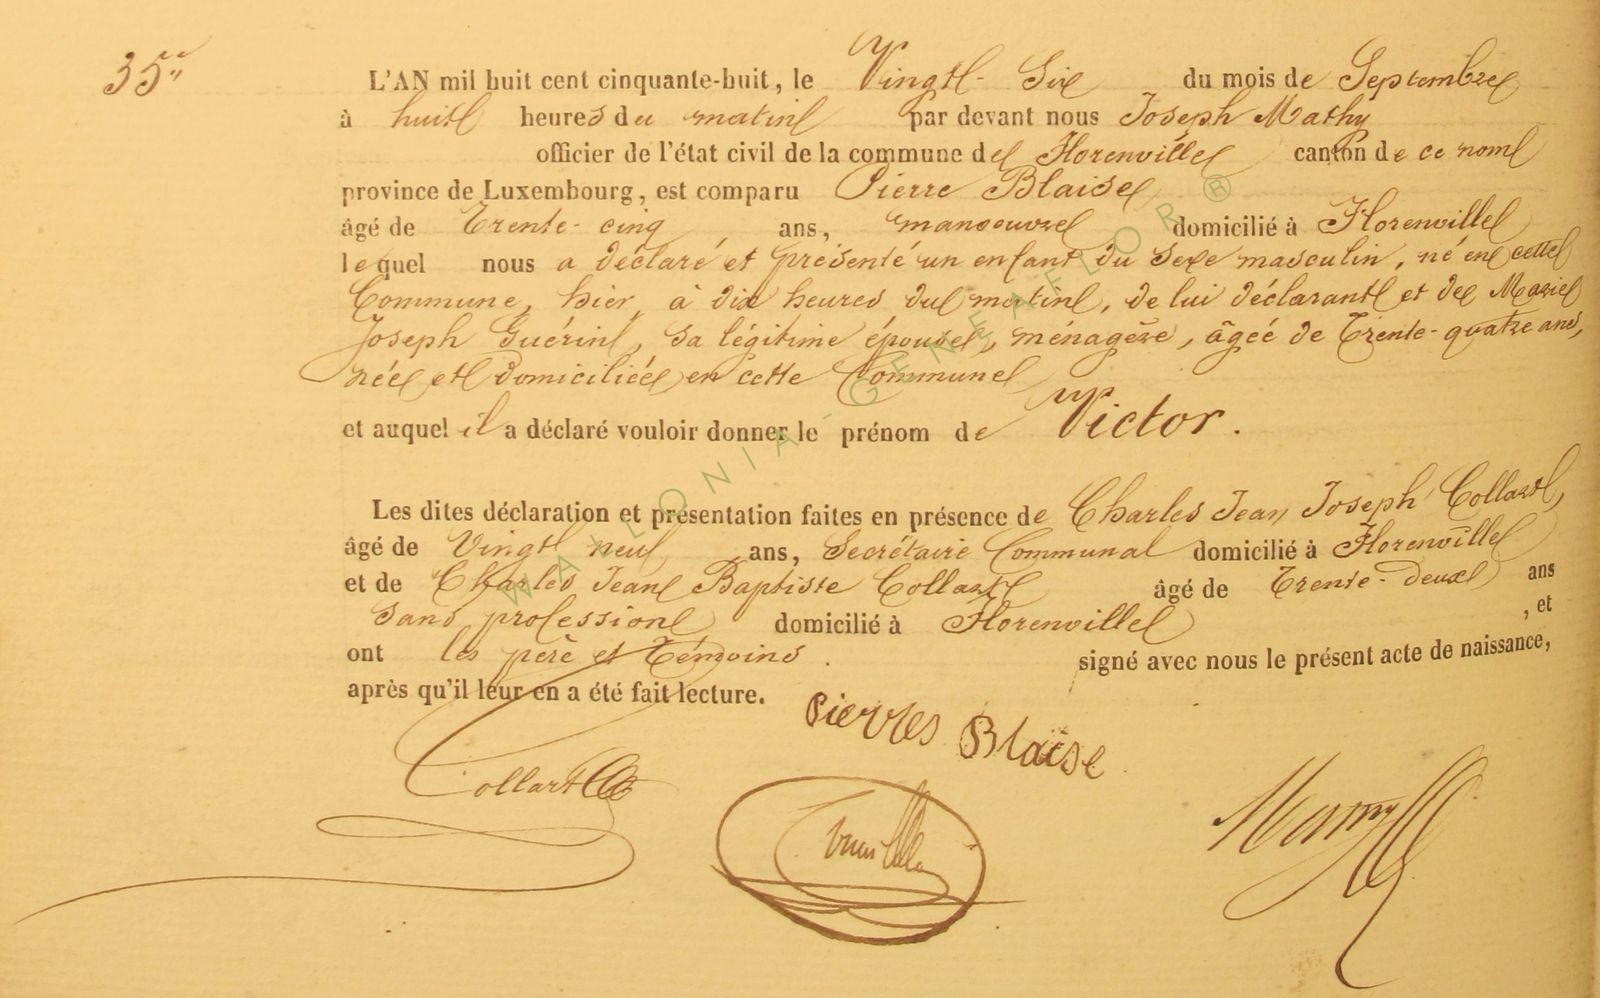 35.
L'AN mil huit cent cinquante-huit, le Vingt-Six du mois de Septembre
à huit heures du matin par devant nous Joseph Mathy
officier de l'état civil de la commune de Florenville canton de ce nom
province de Luxembourg, est comparu Pierre Blaise
âgé de Trente-cinq ans, manoeuvre domicilié à Florenville
lequel nous a déclaré et présenté un enfant du sexe masculin, né en cette
Commune, hier, à dix heures du matin, de lui déclarant et de Marie
Joseph Guérin, sa légitime épouse, ménagère, âgée de Trente-quatre ans,
née et domiciliée en cette Commune
et auquel il a déclaré vouloir donner le prénom de Victor.
Les dites déclaration et présentation faites en présence de Charles Jean Joseph Collart,
âgé de Vingt neuf ans, Secrétaire Communal domicilié à Florenville
et de Charles Jean Baptiste Collart âgé de Trente-deux ans
sans profession domicilié à Florenville , et
ont les père et témoins. signé avec nous le présent acte de naissance,
après qu'il leur en a été fait lecture.
Pierres Blaise
Collart
Mathy
WALLONIA-GENEAFLOR ®